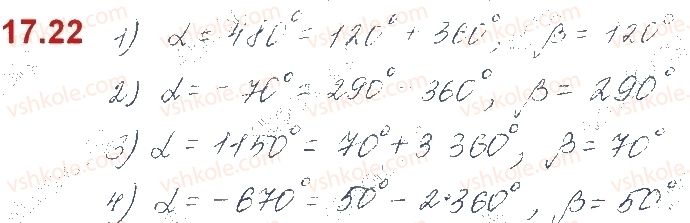 17.22 1) α = 480° = 120° + 360°, β = 120°
2) α = -70° = 290° - 360°, β = 290°
3) α = 1150° = 70° + 3 360°, β = 70°
4) α = -670° = 50° - 2·360°, β = 50°.